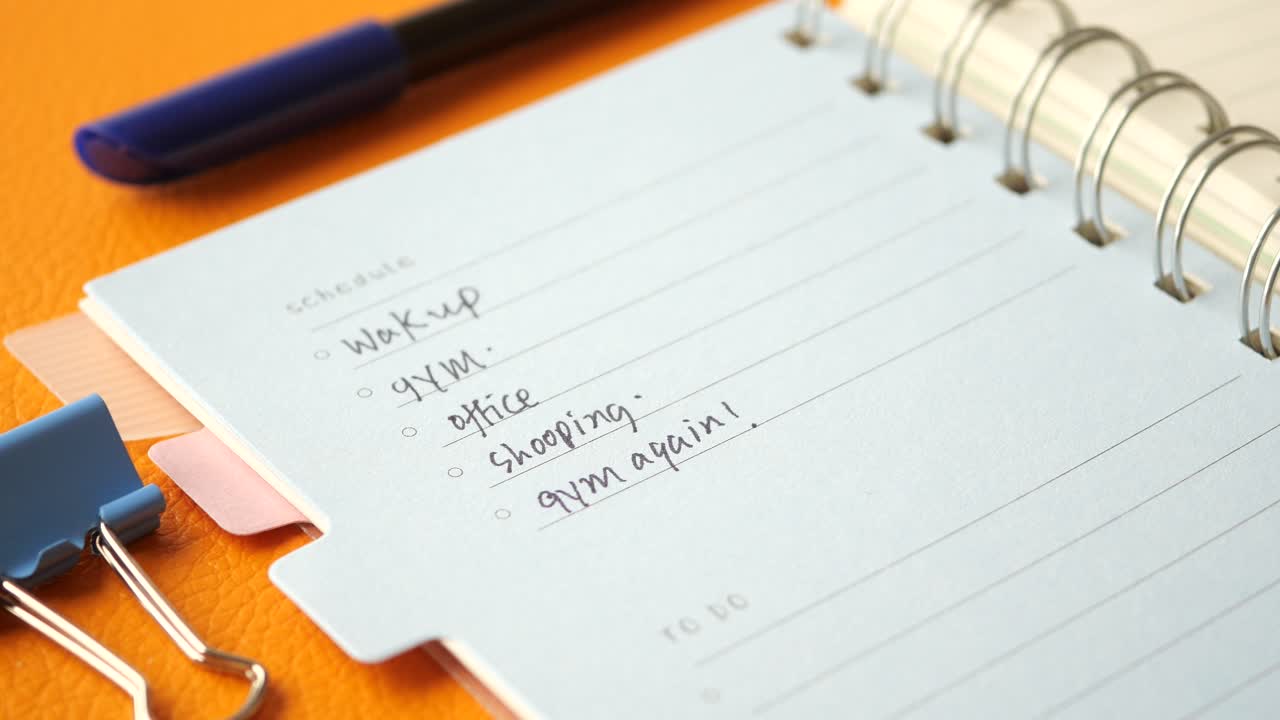 schedule
Wakup
gym.
office
shooping.
gym again!.
TO DO